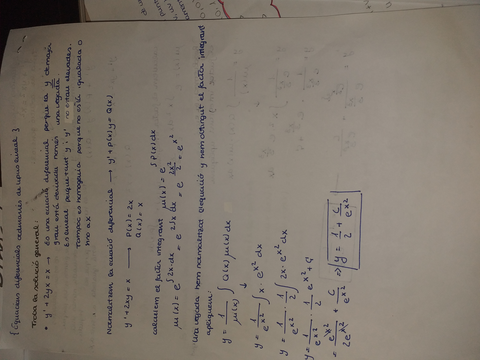 {Equacions diferencials ordinàries de tipus lineal}
Troba la solució general:
• y' + 2yx = x → És una equació diferencial perquè la y
grau està elevada només una vegada
És lineal perquè tant y i y' no estan elevades.
Tampoc és homogènia perquè no està igualada 0
Normalitzem l'equació diferencial → y' + P(x)y = Q(x)
y' + 2xy = x → P(x) = 2x
Q(x) = x
Calculem el factor integrant μ(x) = e^∫P(x)dx
μ(x) = e^∫2x·dx = e^2∫xdx = e^2x²/2 = e^x²
Una vegada hem normalitzat l'equació y hem obtingut el factor integrant
apliquem:
y = 1/μ(x) ∫ Q(x) μ(x) dx
y = 1/e^x² ∫ x · e^x² dx
y = 1/e^x² · 1/2 ∫ 2x · e^x² dx
y = 1/e^x² · 1/2 e^x² + C
= e^x²/2e^x² + C/e^x² ⇒ y = 1/2 + C/e^x²